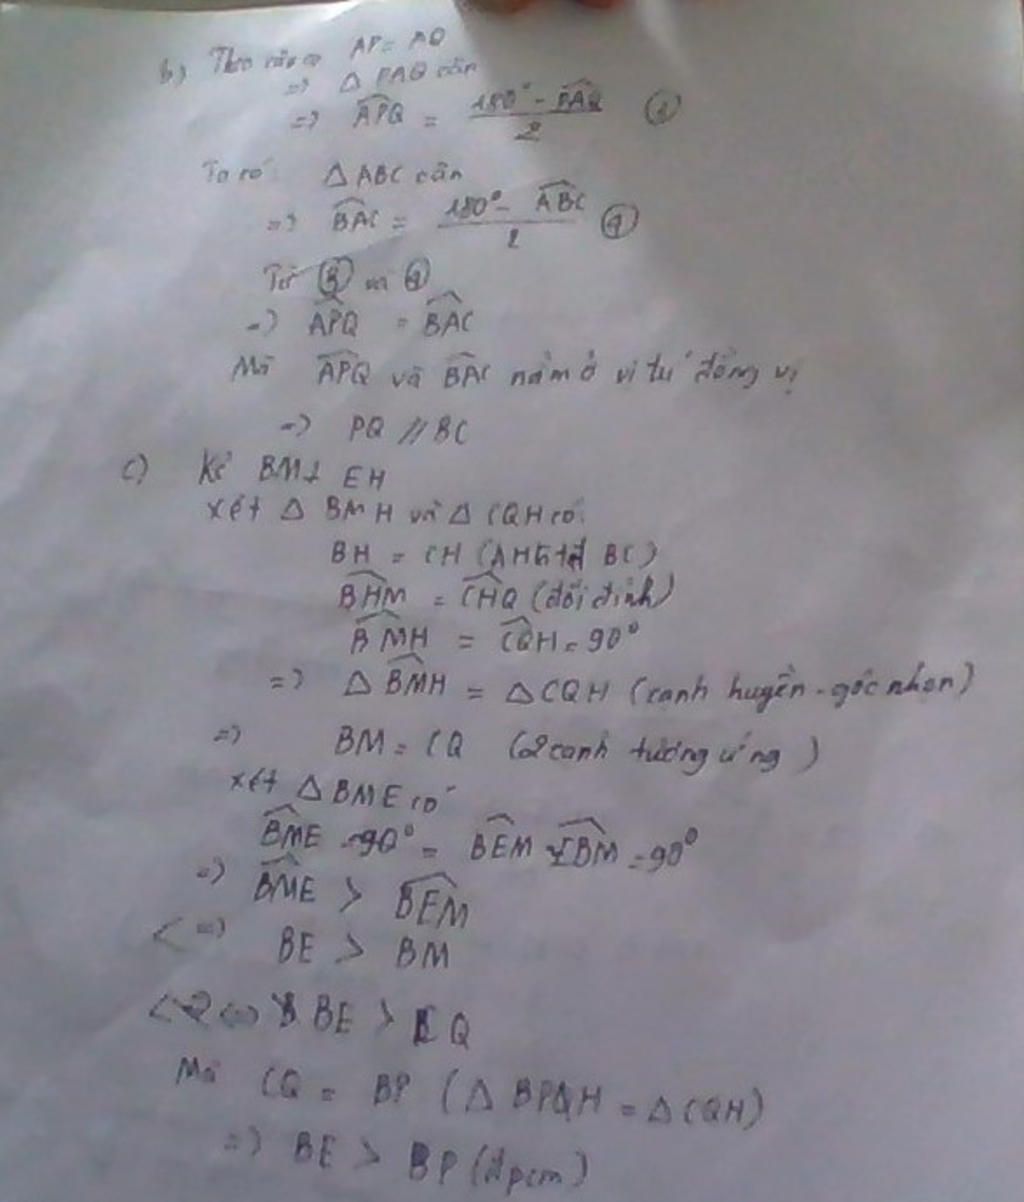 b) Theo câu a AP = AQ
=> Δ PAQ cân
=> APQ = 180° - PAQ / 2 ③
Ta có Δ ABC cân
=> BAC = 180° - ABC / 2 ④
Từ ③ và ④
=> APQ = BAC
Mà APQ và BAC nằm ở vi tu' đồng vị
=> PQ // BC
c) Kẻ BM ⊥ EH
xét Δ BMH và Δ CQH có:
BH = CH (AH BC)
BHM = CHQ (đối đỉnh)
BMH = CQH = 90°
=> Δ BMH = Δ CQH (canh huyền - góc nhọn)
=> BM = CQ (2 canh tương ứng)
xét Δ BME có
BME = 90° = BEM EBM = 90°
=> BME > BEM
<=> BE > BM
<=> BE > CQ
Mà CQ = BP (Δ BPH = Δ CQH)
=> BE > BP (đpcm)